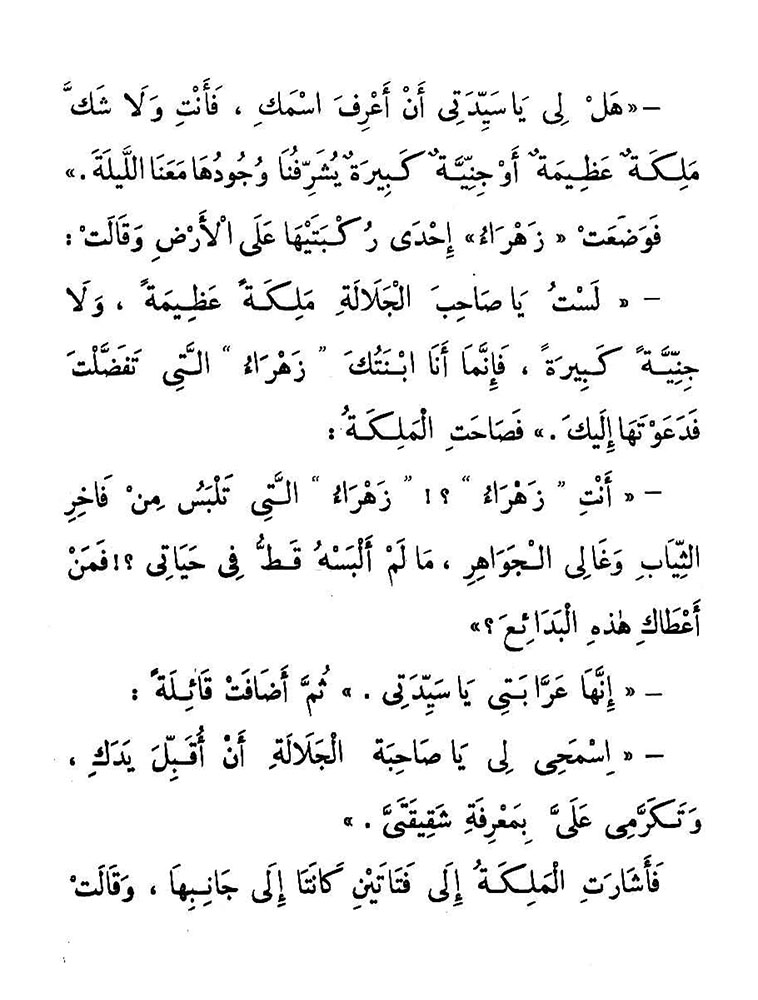 – «هَلْ لِى يَا سَيِّدَتِى أَنْ أَعْرِفَ اسْمَكِ ، فَأَنْتِ وَلَا شَكَّ
مَلِكَةٌ عَظِيمَةٌ أَوْ جِنِّيَّةٌ كَبِيرَةٌ يُشَرِّفُنَا وُجُودُهَا مَعَنَا اللَّيلَةَ .»
فَوَضَعَتْ « زَهْرَاءُ» إِحْدَى رُكْبَتَيْهَا عَلَى الْأَرْضِ وَقَالَتْ :
– « لَسْتُ يَا صَاحِبَ الْجَلَالَةِ مَلِكَةً عَظِيمَةً ، وَلَا
جِنِّيَّةً كَبِيرَةً ، فَإِنَّمَا أَنَا ابْنَتُكَ ” زَهْرَاءُ “ الَّتِى تَفَضَّلْتَ
فَدَعَوْتَهَا إِلَيكَ .» فَصَاحَتِ الْمَلِكَةُ :
– « أَنْتِ ” زَهْرَاءُ “ ؟! ” زَهْرَاءُ “ الَّتِى تَلْبَسُ مِنْ فَاخِرِ
الثِّيَابِ وَغَالِى الْجَوَاهِرِ ، مَا لَمْ أَلْبَسْهُ قَطُّ فِى حَيَاتِى ؟! فَمَنْ
أَعْطَاكِ هٰذِهِ الْبَدَائِعَ ؟»
– « إِنَّهَا عَرَّابَتِى يَا سَيِّدَتِى . » ثُمَّ أَضَافَتْ قَائِلَةً :
– « اِسْمَحِى لِى يَا صَاحِبَة الْجَلَالَةِ أَنْ أُقَبِّلَ يَدَكِ ،
وَتَكَرَّمِى عَلَىَّ بِمَعْرِفَةِ شَقِيقَتَىَّ . »
فَأَشَارَتِ الْمَلِكَةُ إِلَى فَتَاتَيْنِ كَانَتَا إِلَى جَانِبِهَا ، وَقَالَتْ